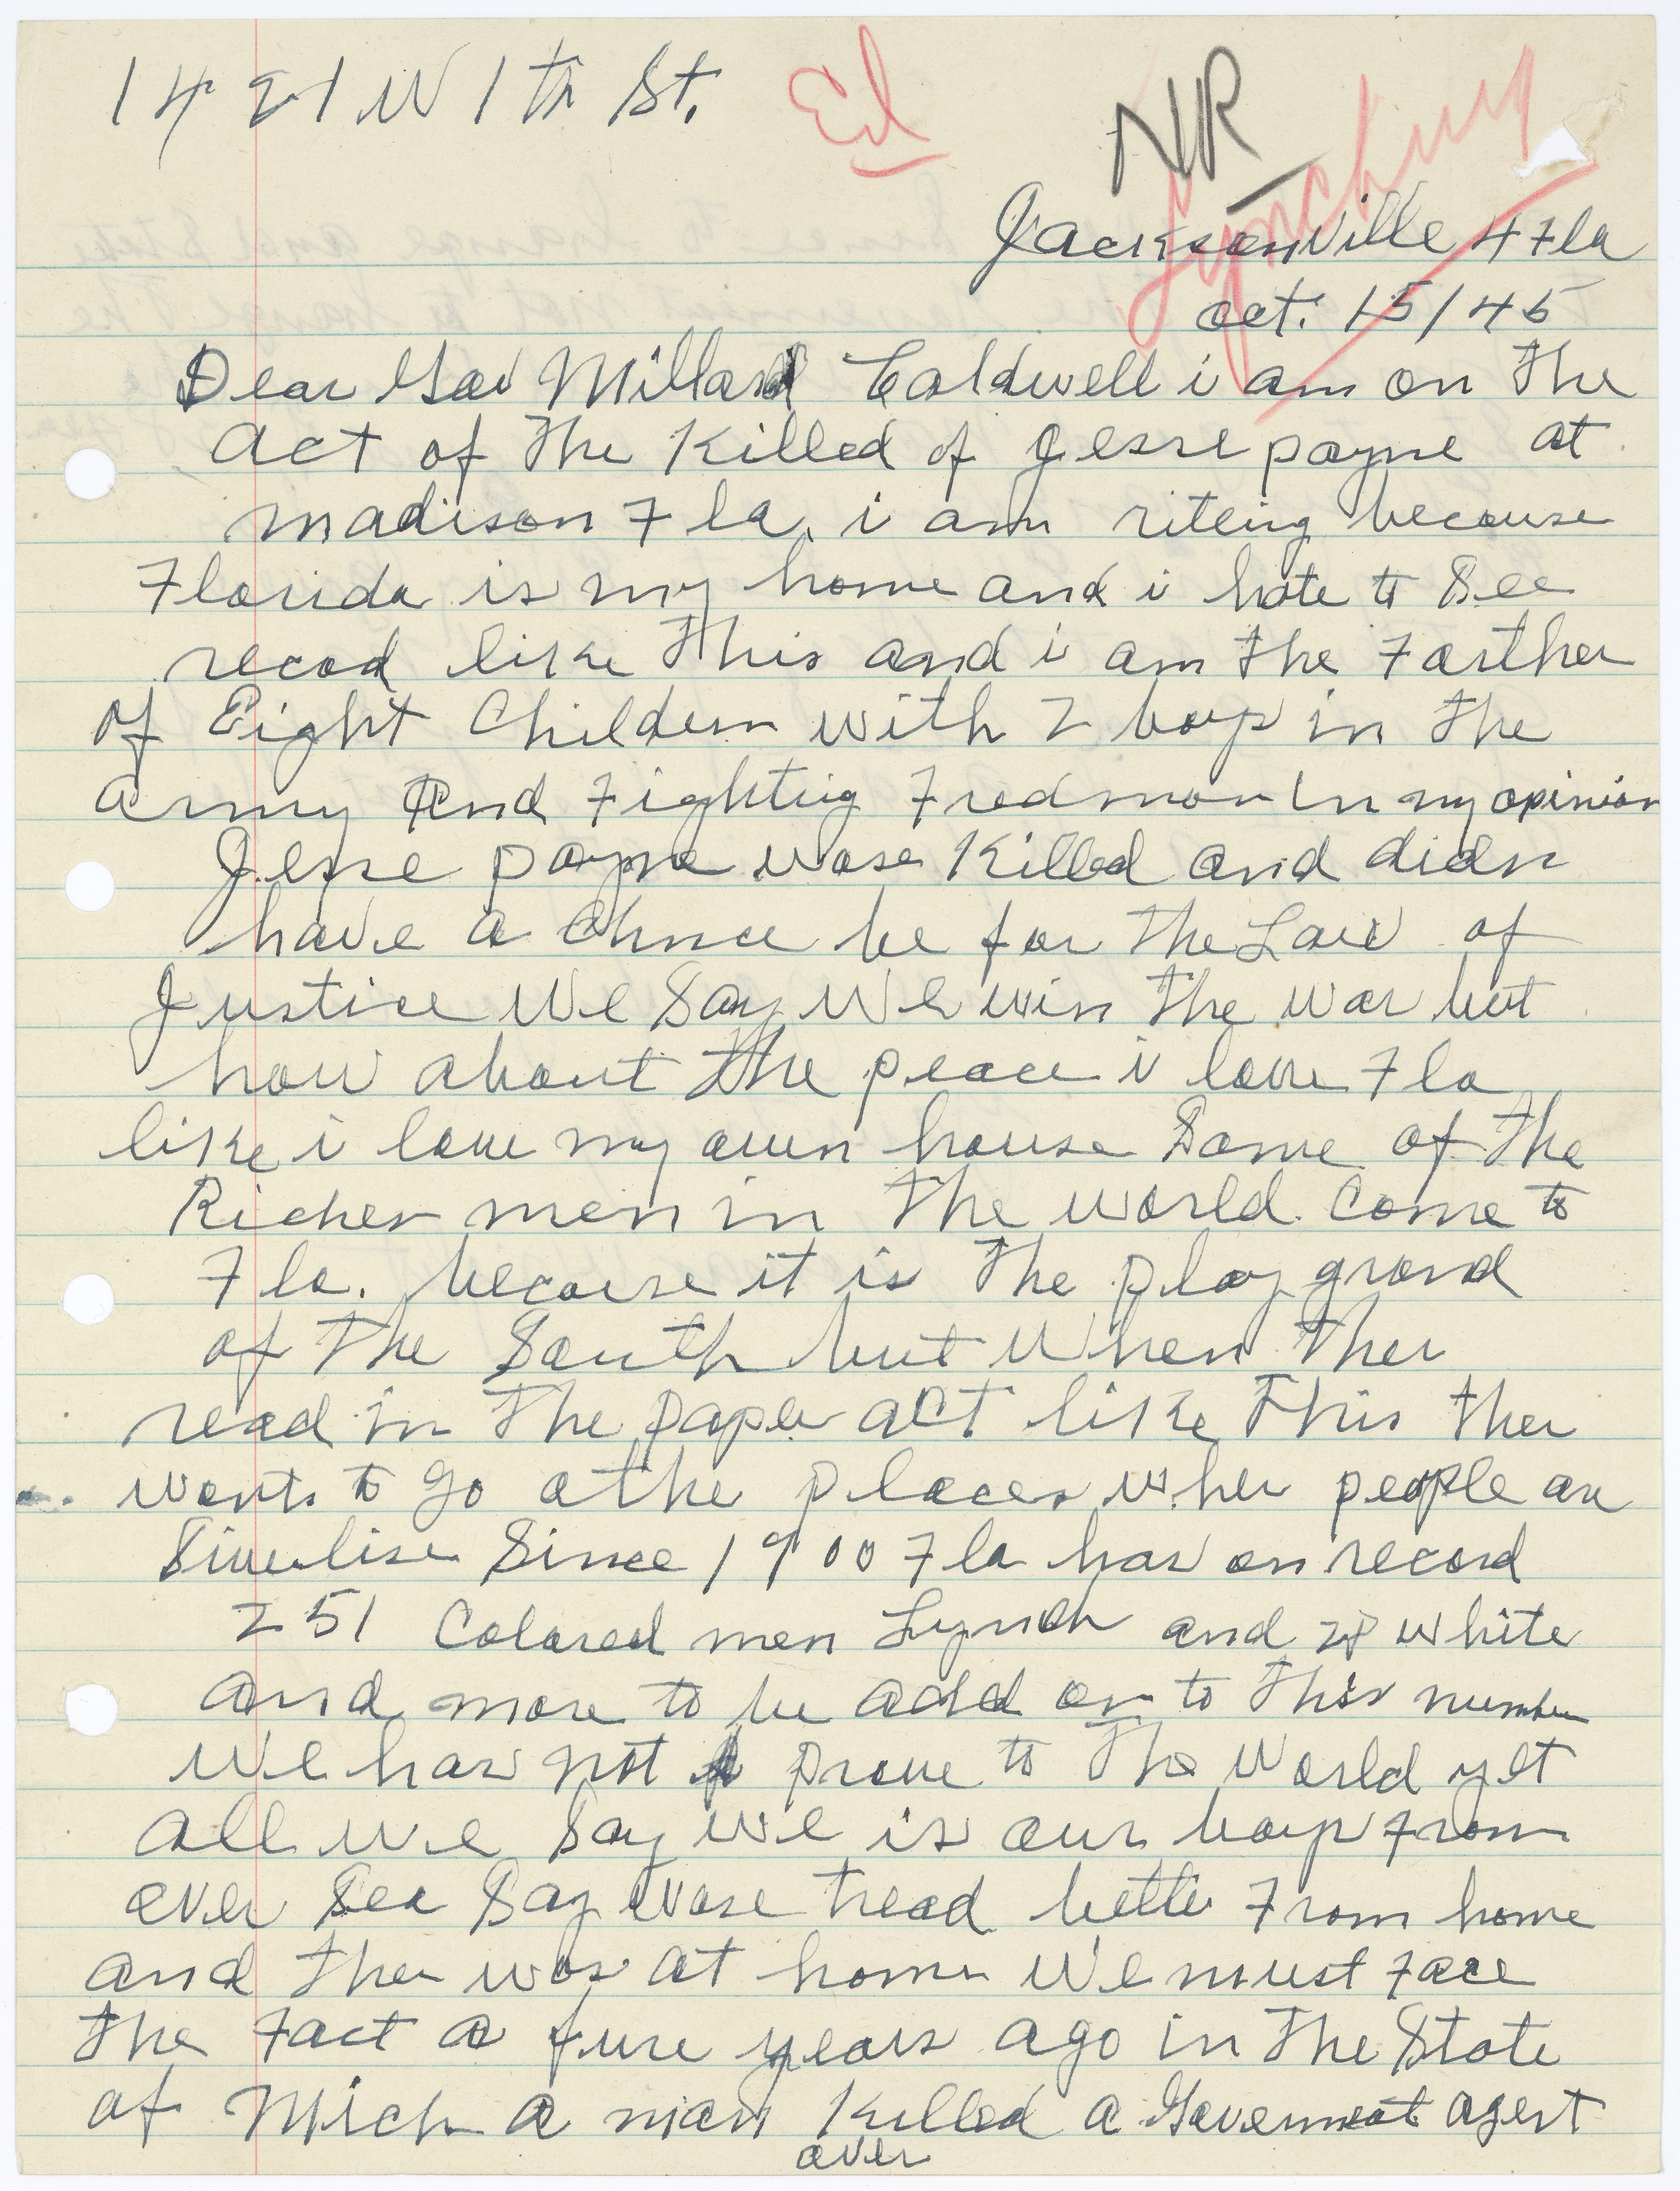 1421 W 1th St.
Ed
NR
Lynching
Jacksonville 4 Fla
oct. 15/45
Dear Gov Millard Caldwell i am on the
act of the Killed of Jesse payne at
madison Fla. i am riteing because
Florida is my home and i hate to See
recod like this and i am the Farther
of Eight Childern with 2 boys in the
army And Fighting Fredmon In my opinion
Jesse payne wose Killed and didn
have a chnce be for the Law of
Justice We Say We win the war but
how about the peace i love Fla
like i love my own house Some of the
Richer men in the world come to
Fla. because it is the play grond
of the South but when ther
read in the paper act like this ther
wonts to go othe places wher people are
Sivelise Since 1900 Fla has on record
251 Colored men Lynch and 28 white
and more to be add on to this number
We has not prove to the World yet
all we Say we is our boys from
over Sea Say wose tread bette From home
and ther was at home We must Face
the Fact a fure years ago in the State
of Mich a man Killed a Goverment agent
over